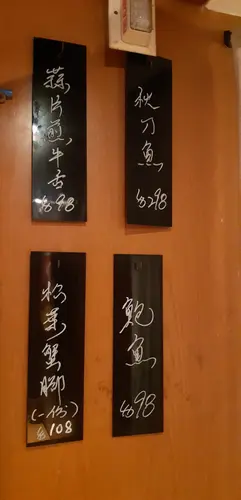 蒜片煎牛舌
$98
秋刀魚
$298
松葉蟹腳
(一份)
$108
鮑魚
$98